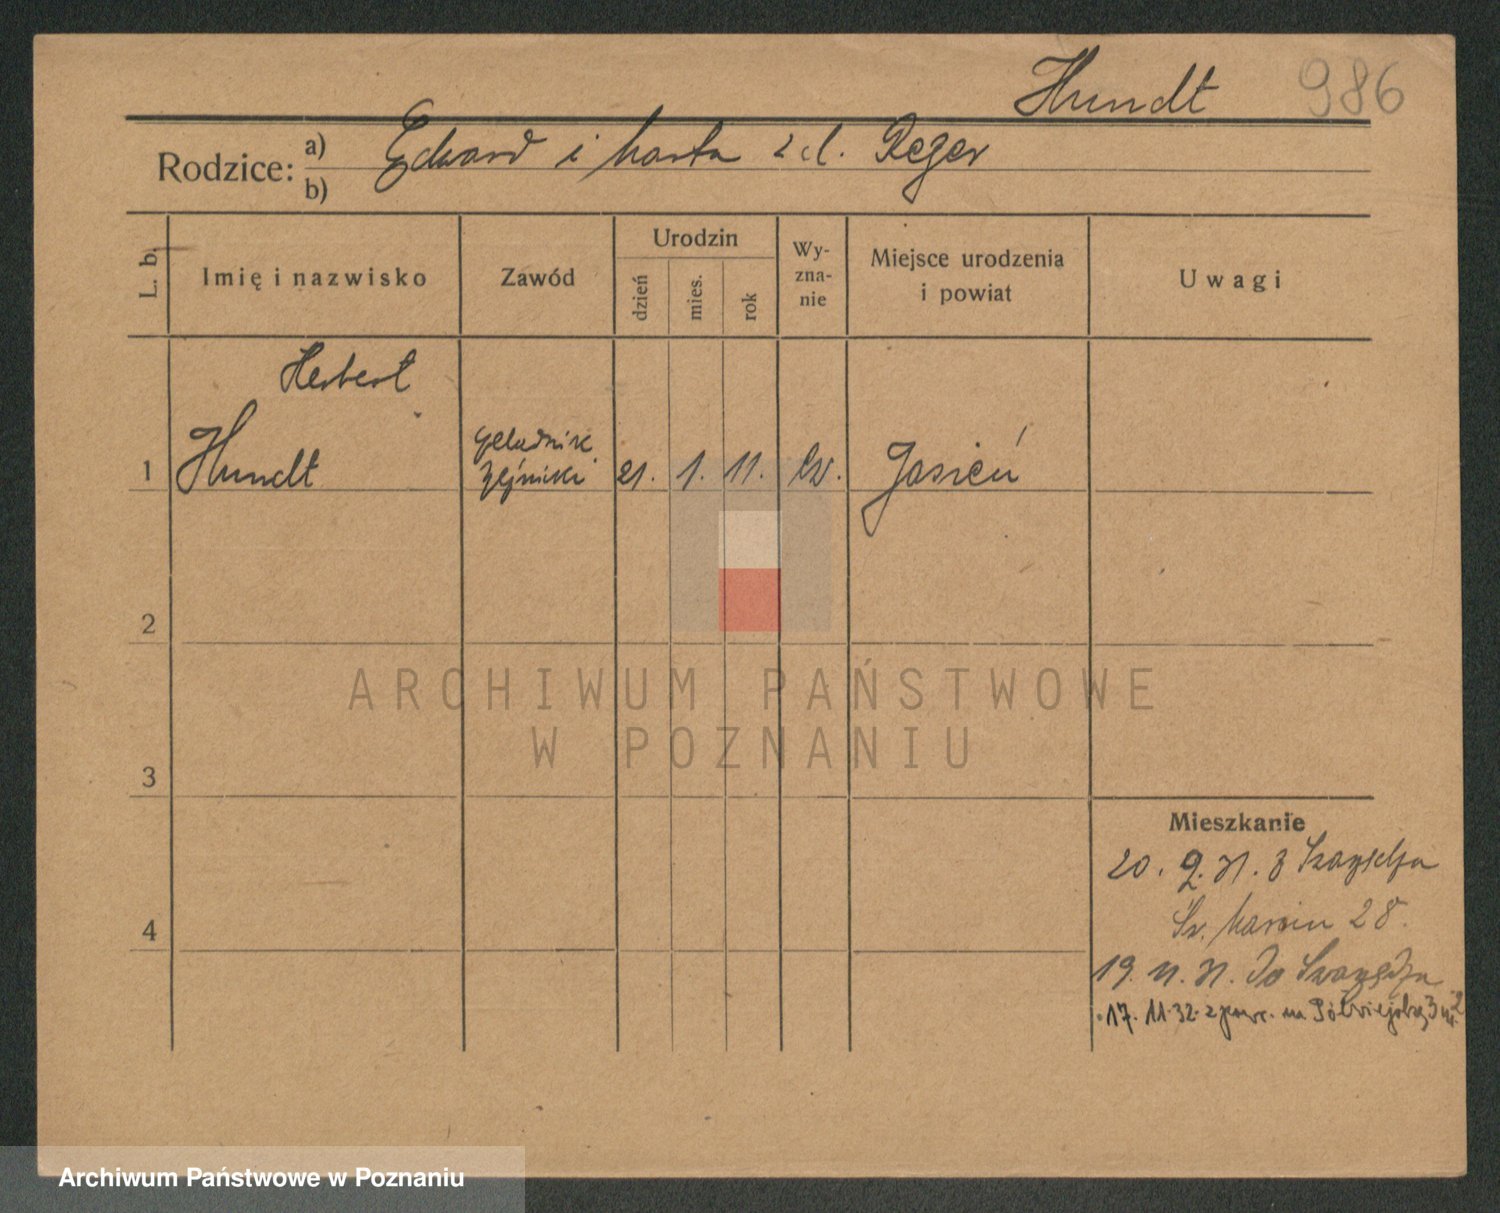 Hundt 986
Rodzice: a) Edward i Marta z d. Reger
b)
L. b. Imię i nazwisko Zawód Urodzin dzień mies. rok Wy-zna-nie Miejsce urodzenia i powiat Uwagi
Herbert
1 Hundt czeladnik 21. 1. 11. ew. Jasień
2
3
4
Mieszkanie
20. 2. 31. z Swarzędza
Św. Marcin 28.
19. 11. 31. do Swarzędza
17. 11. 32. z pow. na Półwiejską 3
ARCHIWUM PAŃSTWOWE
W POZNANIU
Archiwum Państwowe w Poznaniu